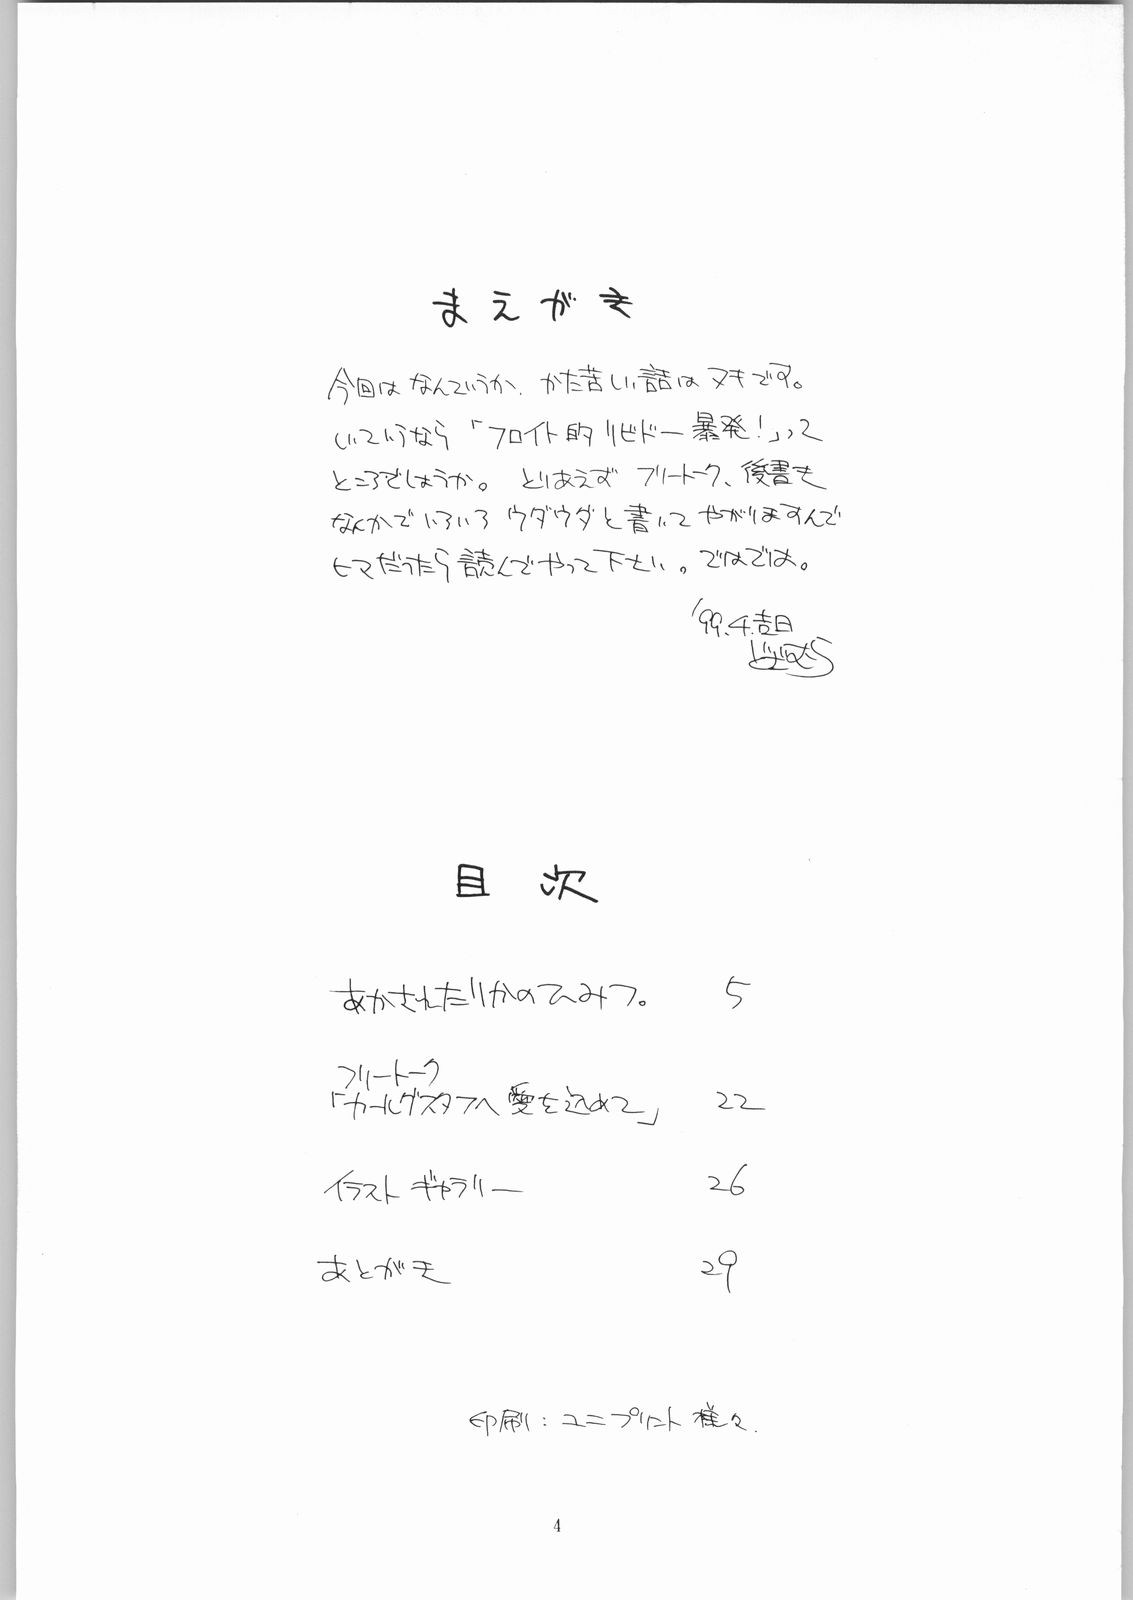 まえがき
今回はなんていうか、かた苦しい話はヌキです。
いていうなら「フロイト的リビドー暴発！」って
ところでしょうか。とりあえずフリートーク、後書き
なんかでいろいろウダウダと書いてやがりますんで
ヒマだったら読んでやって下さい。ではでは。
'99.4.吉日
目次
あかされたりかのひみつ。 5
フリートーク
「カールグスタフへ愛を込めて」 22
イラストギャラリー 26
あとがき 29
印刷：ユニプリント様々.
4